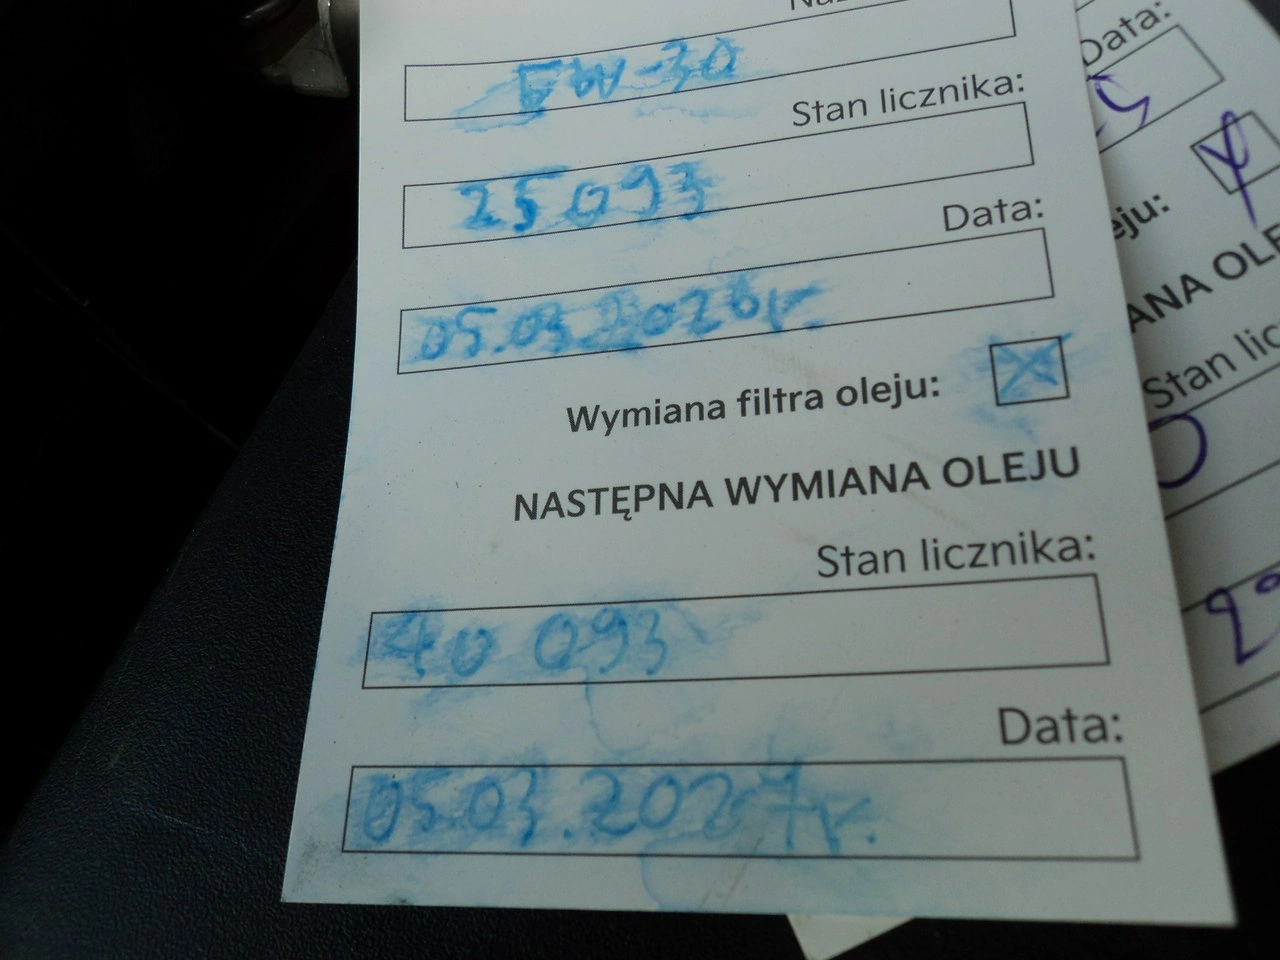 5W-30
Stan licznika:
25093
Data:
05.03.2026r.
Wymiana filtra oleju:
NASTĘPNA WYMIANA OLEJU
Stan licznika:
40 093
Data:
05.03.2027r.
Data: